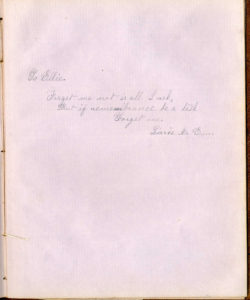 To Ellie.
Forget me not is all I ask,
But if remembrance be a task
Forget me.